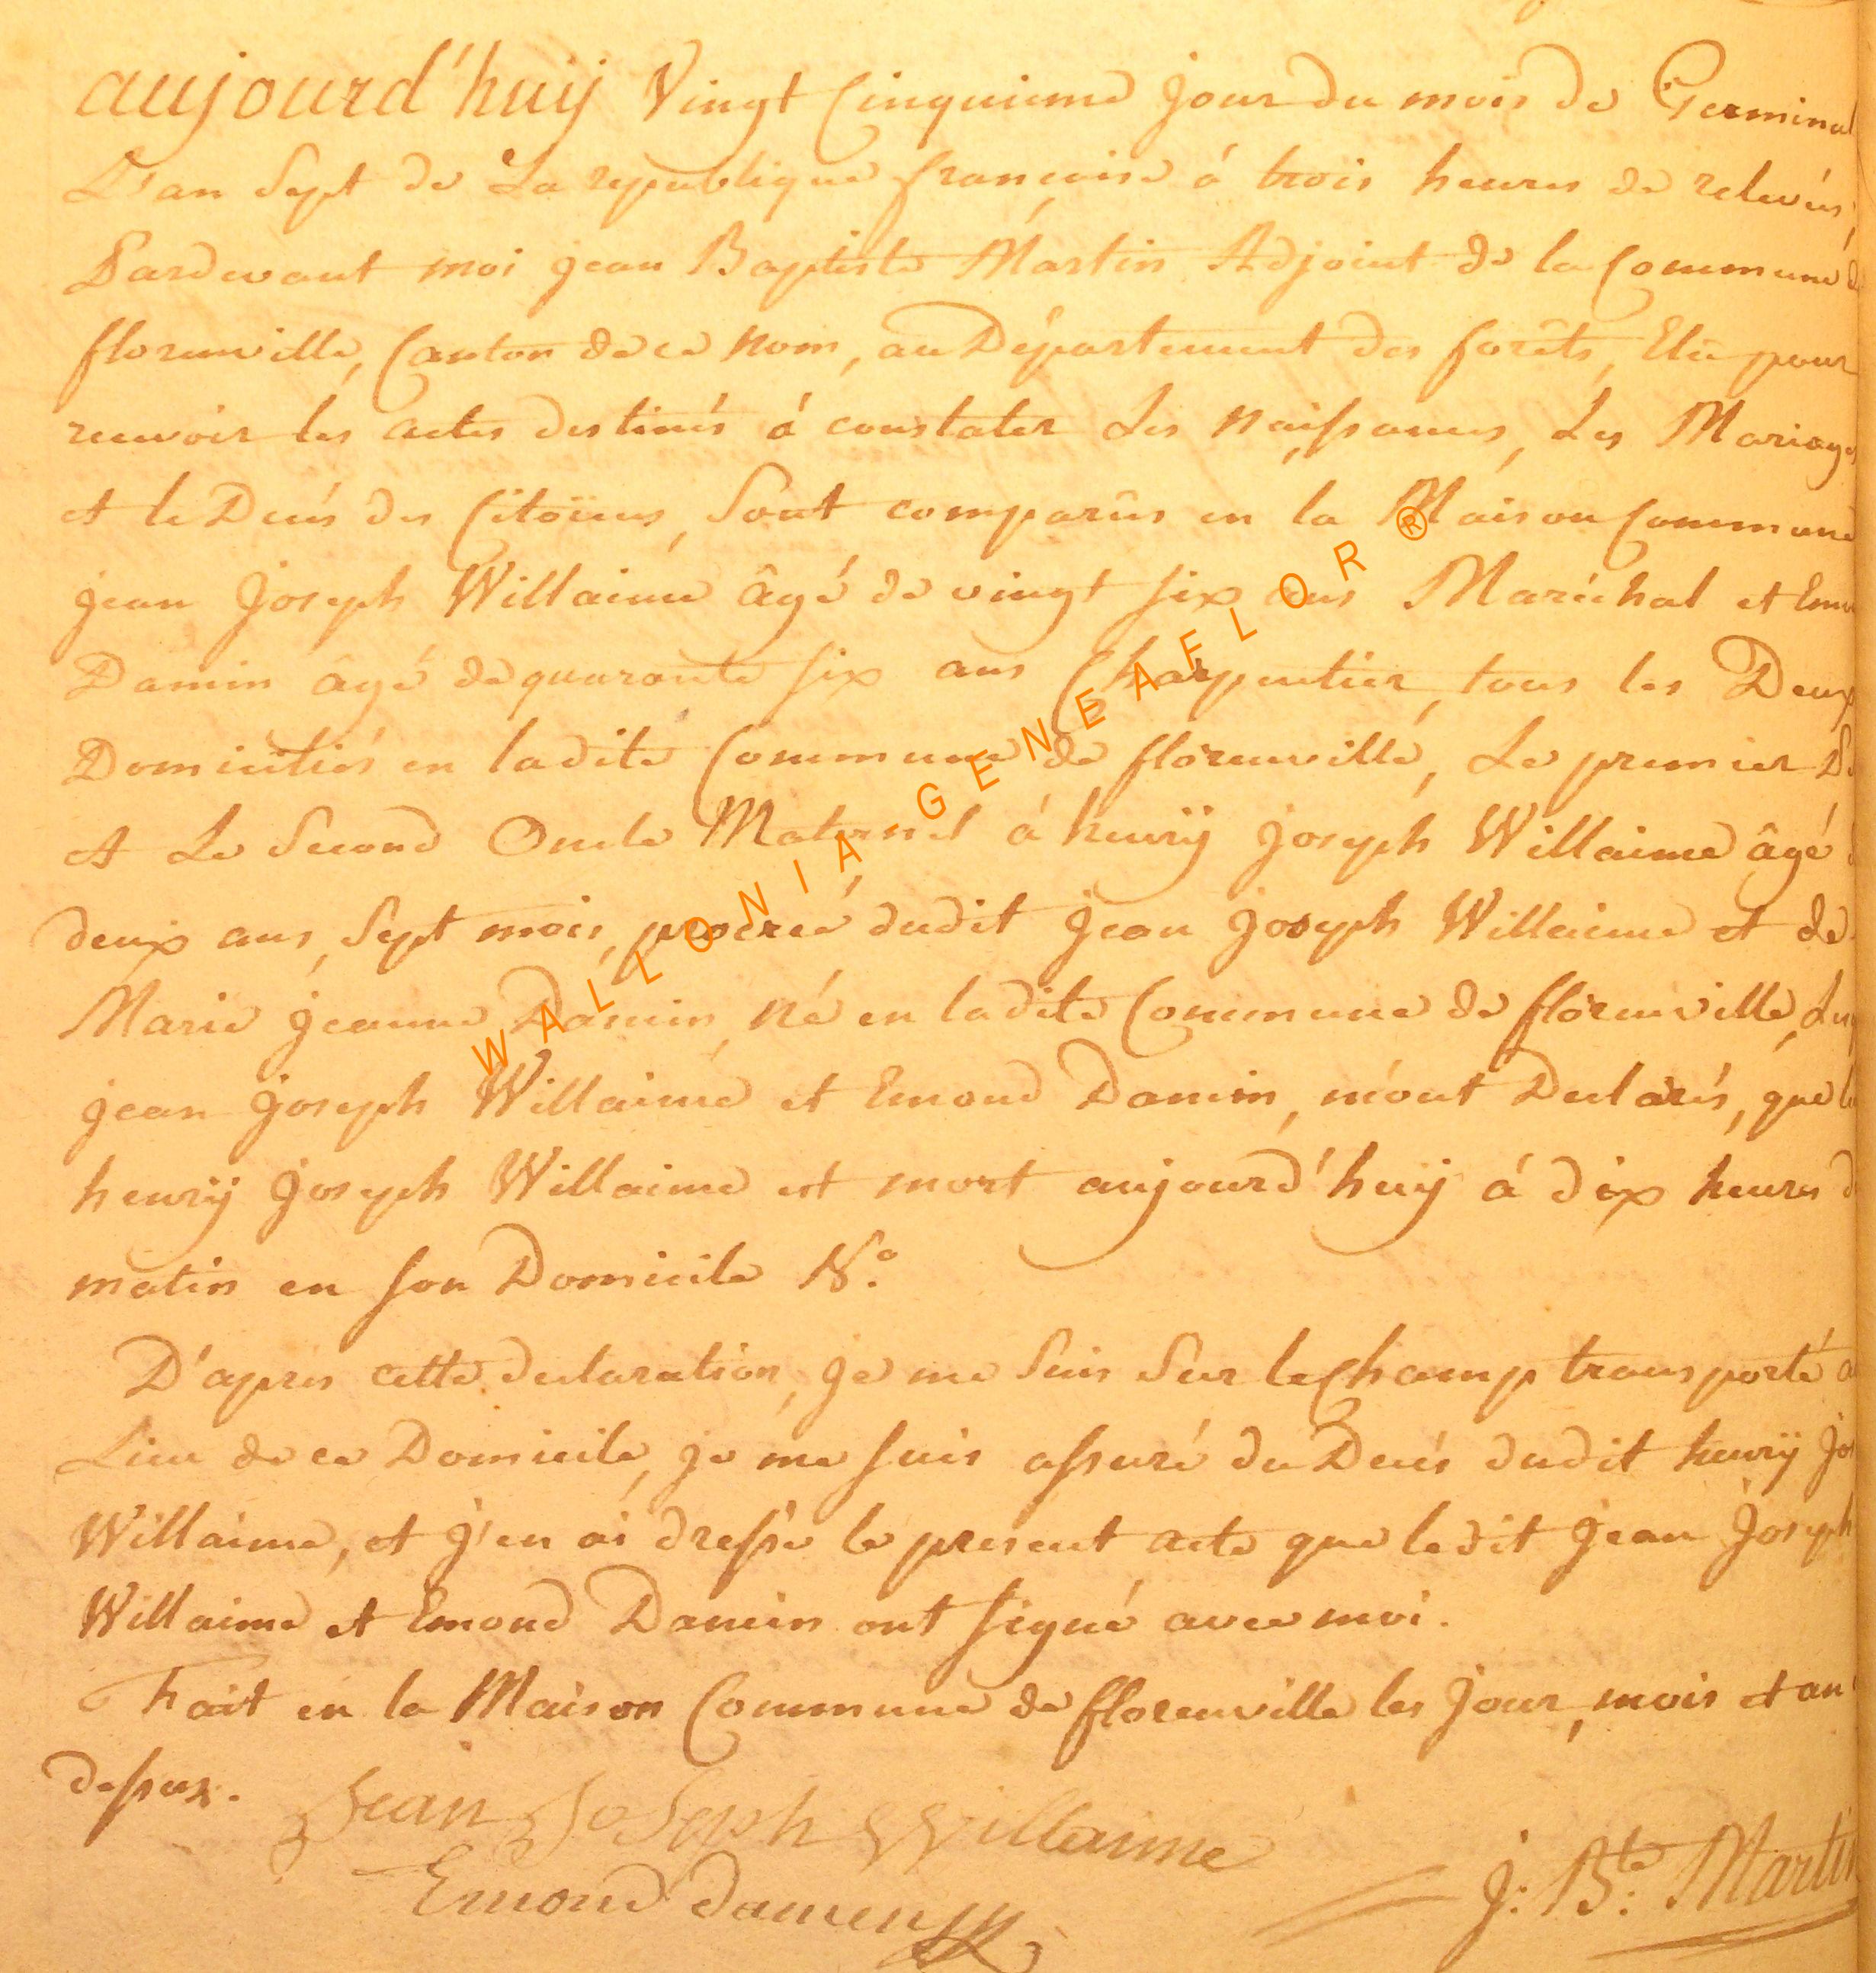 aujourd'huij Vingt Cinquieme jour du mois de Germinal
L'an Sept de La republique françaisе à trois heures de relevées,
Pardevant moi jean Baptiste Martin Adjoint de la Commune de
florenville, Canton de ce nom, au Département des forêts, Elu pour
recevoir les actes destinés à constater Les Naissances, Les Mariages
et le Decés des Citoïens, Sont comparûs en la Maison Commune
jean Joseph Willaime âgé de vingt six ans Maréchal et Emond
Damin âgé de quarante six ans Charpentier, tous les Deux
Domiciliés en ladite Commune de florenville, Le premier
et Le Second Oncle Maternel à henrÿ Joseph Willaime âgé
deux ans, Sept mois, procréé dudit Jean Joseph Willaime et de
Marie jeanne Damin, né en ladite Commune de florenville,
jean Joseph Willaime et Emond Damin, m'ont Declarés, que
henrÿ Joseph Willaime est mort aujourd'huij à dix heures
matin en son Domicile N.°
D'apres cette declaration, je me Suis Sur le Champ transporté
Lieu de ce Domicile, je me suis assuré du Decés dudit henrÿ
Willaime, et j'en ai dressé le present acte que ledit Jean Joseph
Willaime et Emond Damin ont signé avec moi.
Fait en la Maison Commune de florenville les Jour, mois et an
dessus.
Jean Joseph Willaime
J: B.te: Martin
Emond damen
WALLONIA GENEAFLOR ®